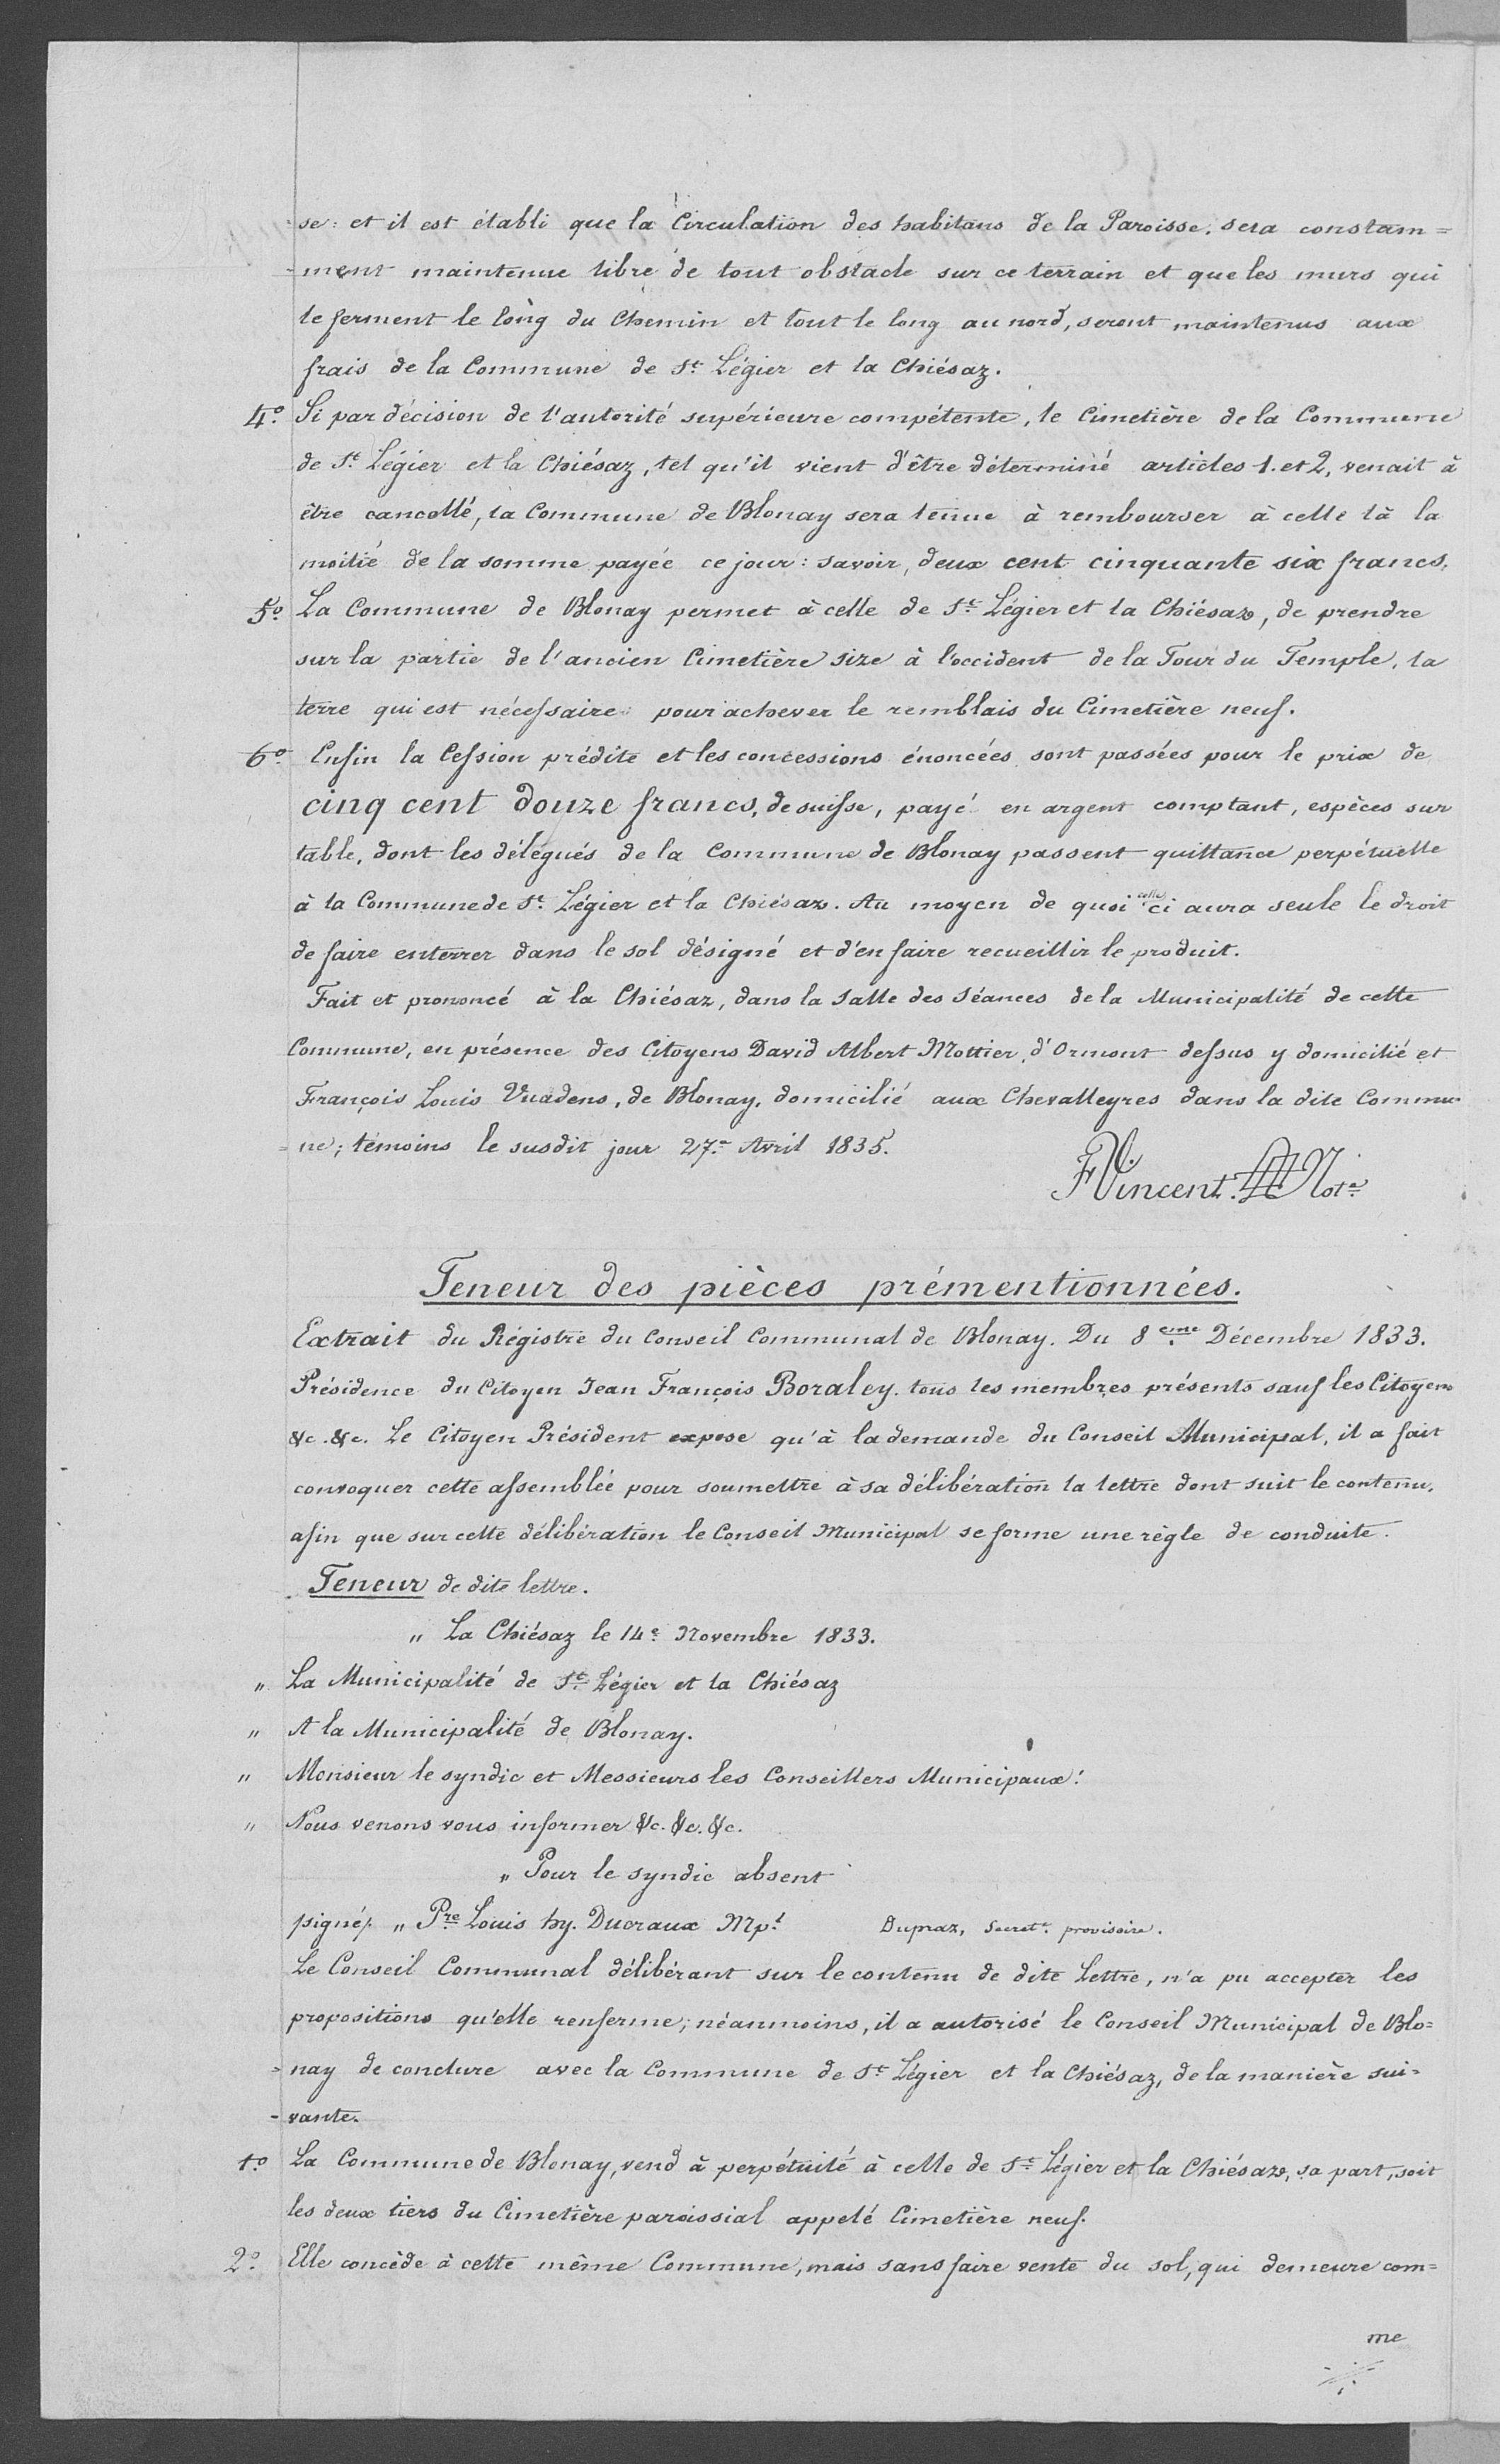 se: et il est établi que la Circulation des habitans de la Paroisse, sera constam=
=ment maintenue libre de tout obstacle sur ce terrain et que les murs qui
le ferment le long du Chemin et tout le long au nord, seront maintenus aux
frais de la Commune de St. Légier et la Chiésaz.
4o. Si par décision de l'autorité supérieure compétente, le Cimetière de la Commune
de St. Légier et la Chiésaz, tel qu'il vient d'être déterminé articles 1. et 2, venait à
être cancellé, la Commune de Blonay sera tenue à rembourser à celle là la
moitié de la somme payée ce jour: savoir, deux cent cinquante six francs.
5o. La Commune de Blonay permet à celle de St. Légier et la Chiésaz, de prendre
sur la partie de l'ancien Cimetière size à l'occident de la Tour du Temple, la
terre qui est nécessaire pour achever le remblais du Cimetière neuf.
6o. Enfin la Cession prédite et les concessions énoncées sont passées pour le prix de
cinq cent douze francs, de suisse, payé en argent comptant, espèces sur
table, dont les délégués de la Commune de Blonay passent quittance perpétuelle
à la Commune de St. Légier et la Chiésaz. Au moyen de quoi celle ci aura seule le droit
de faire enterrer dans le sol désigné et d'en faire recueillir le produit.
Fait et prononcé à la Chiésaz, dans la salle des séances de la Municipalité de cette
Commune, en présence des Citoyens David Albert Mottier, d'Ormont dessus y domicilié et
François Louis Vuadens, de Blonay, domicilié aux Chevalleyres dans la dite Commu=
=ne; témoins le susdit jour 27e. Avril 1835.
FVincent. Note.
Teneur des pièces prémentionnées.
Extrait du Régistre du Conseil Communal de Blonay. Du 8eme. Décembre 1833.
Présidence du Citoyen Jean François Boraley. tous les membres présents sauf les Citoyens
&c. &c. Le Citoyen Président expose qu'à la demande du Conseil Municipal, il a fait
convoquer cette assemblée pour soumettre à sa délibération la lettre dont suit le contenu,
afin que sur cette délibération le Conseil Municipal se forme une règle de conduite.
Teneur de dite lettre.
" La Chiésaz le 14e. Novembre 1833.
" La Municipalité de St. Légier et la Chiésaz
" A la Municipalité de Blonay.
" Monsieur le syndic et Messieurs les Conseillers Municipaux!
" Nous venons vous informer &c. &c. &c.
" Pour le syndic absent
signé/. " Pre Louis hy. Ducraux Mpl Dupraz, Secret. provisoire.
Le Conseil Communal délibérant sur le contenu de dite Lettre, n'a pu accepter les
propositions qu'elle renferme; néanmoins, il a autorisé le Conseil Municipal de Blo=
=nay de conclure avec la Commune de St. Légier et la Chiésaz, de la manière sui=
=vante.
1o. La Commune de Blonay, vend à perpétuité à celle de St. Légier et la Chiésaz, sa part, soit
les deux tiers du Cimetière paroissial appelé Cimetière neuf.
2o. Elle concède à cette même Commune, mais sans faire vente du sol, qui demeure com=
me